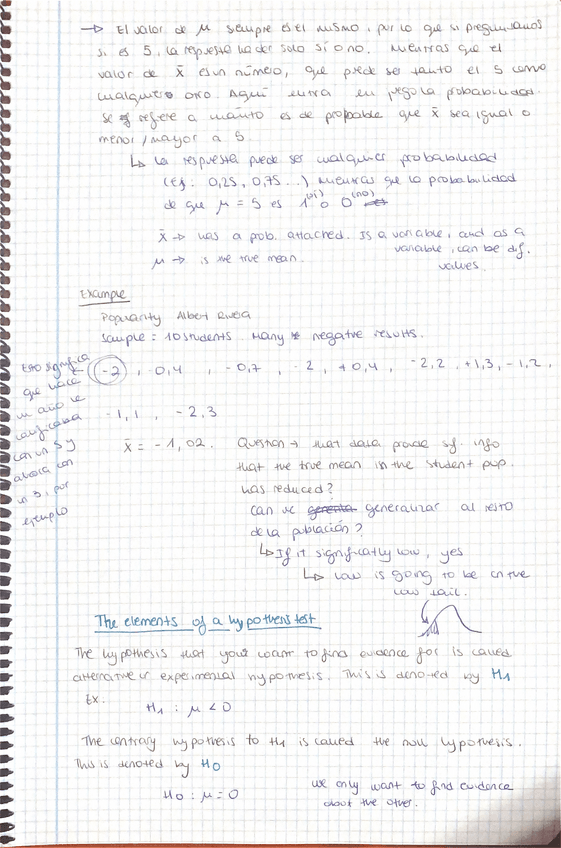 → El valor de μ siempre es el mismo, por lo que si preguntamos
si es 5, la respuesta ha de ser solo sí o no. Mientras que el
valor de x̄ es un número, que puede ser tanto el 5 como
cualquier otro. Aquí entra en juego la probabilidad.
se refiere a cuánto es de probable que x̄ sea igual o
menor/mayor a 5.
↳ La respuesta puede ser cualquier probabilidad
(Ej: 0,25, 0,75...) mientras que la probabilidad
de que μ = 5 es 1 (sí) o 0 (no)
x̄ → has a prob. attached. Is a variable, and as a
variable, can be dif.
values.
μ → is the true mean.
Example
Popularity Albert Rivera
Sample = 10 students. Many negative results.
-2, -0,4, -0,7, -2, +0,4, -2,2, +1,3, -1,2,
-1,1, -2,3
Esto significa
que hace
un año le
calificaba
con un 5 y
ahora con
un 3, por
ejemplo
x̄ = -1,02. Question → that data provide sf. info
that the true mean in the student pop.
has reduced?
can we generalizar al resto
de la población?
↳ If it significatly low, yes
↳ Low is going to be in the
low tail.
The elements of a hypothesis test
The hypothesis that you want to find evidence for is called
alternative or experimental hypothesis. This is denoted by H1
Ex.
H1 : μ < 0
The contrary hypothesis to H1 is called the null hypothesis.
This is denoted by H0
H0 : μ = 0
we only want to find evidence
about the other.